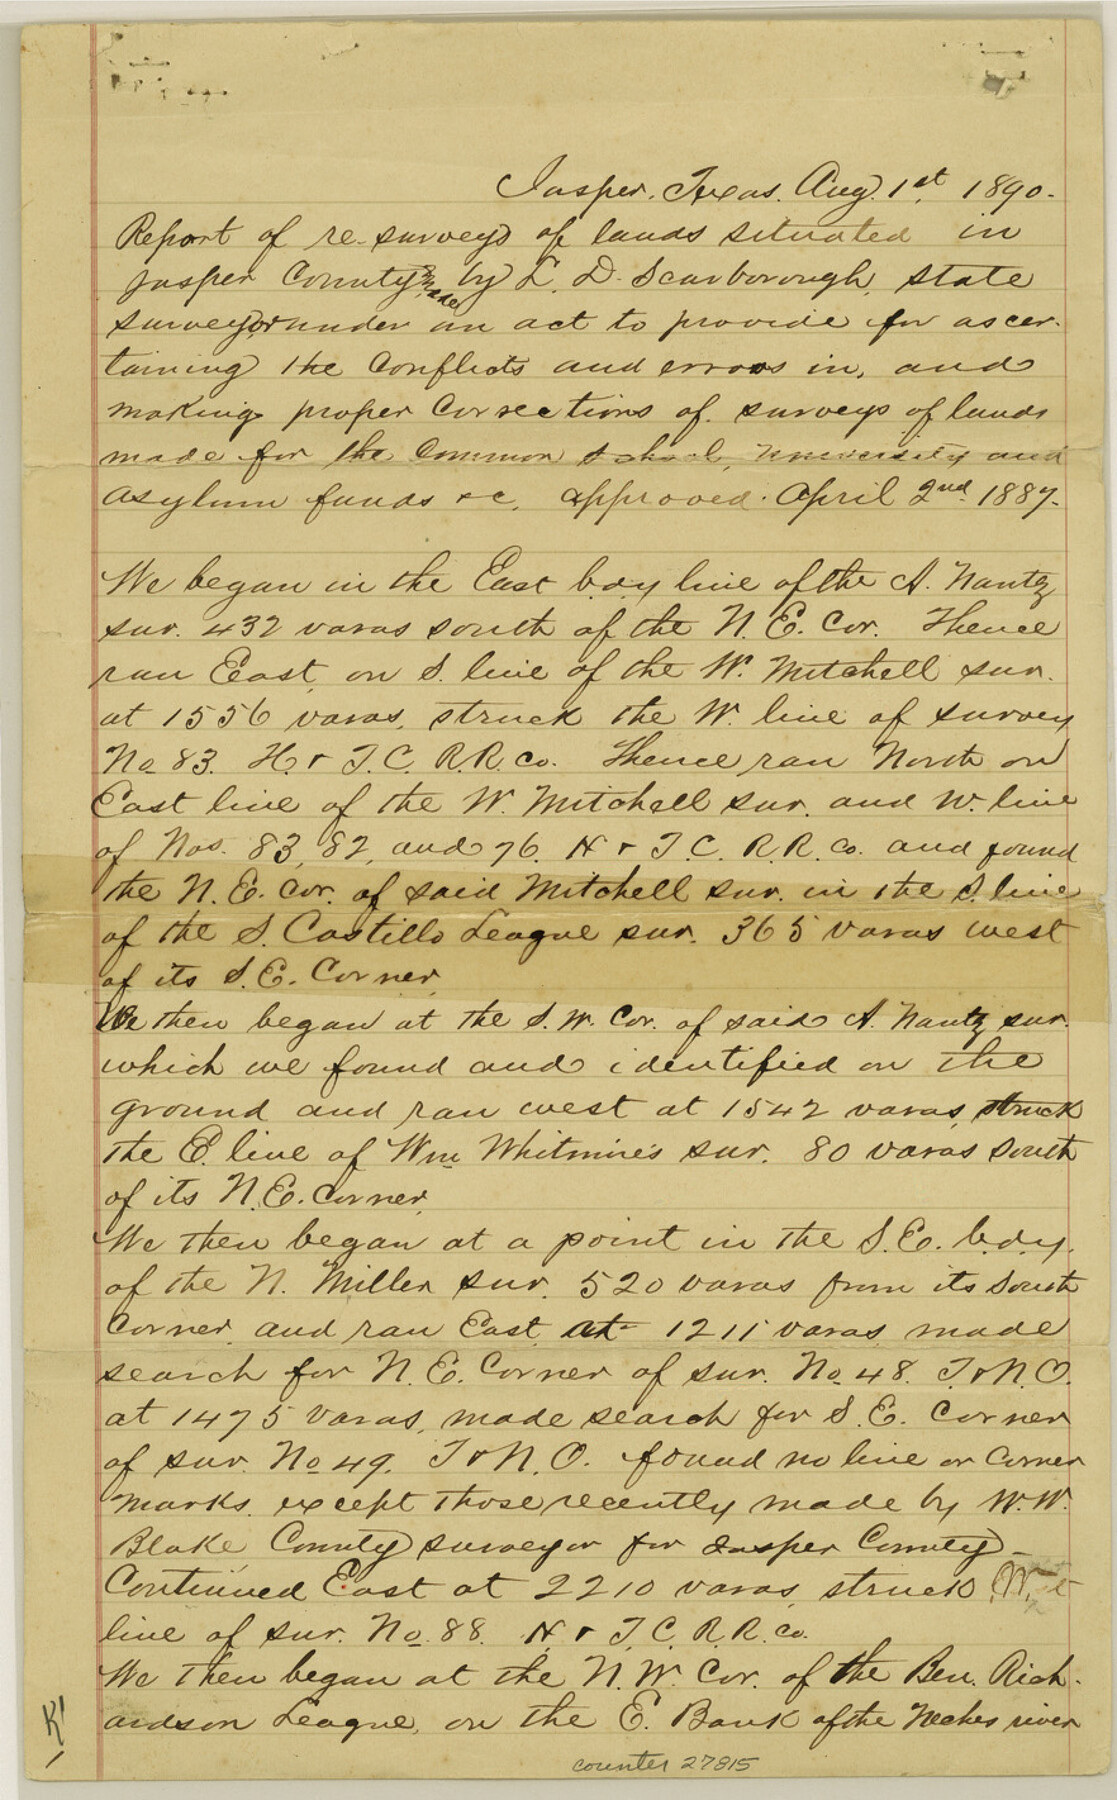 Jasper. Texas. Aug. 1st, 1890.
Report of re-surveys of lands situated in
Jasper County made by L. D. Scarborough, state
surveyor under an act to provide for ascer-
taining the Conflicts and errors in, and
making proper Corrections of surveys of lands
made for the Common school, University and
Asylum funds &c, approved April 2nd 1887.
We began in the East bdy line of the A. Nantz
sur. 432 varas south of the N. E. Cor. Thence
ran East, on S. line of the W. Mitchell sur.
at 1556 varas, struck the W. line of survey
No 83. H. & T. C. R. R. co. Thence ran North on
East line of the W. Mitchell sur. and W. line
of Nos. 83, 82, and 76. H & T. C. R. R. co. and found
the N. E. Cor. of said Mitchell sur. in the S. line
of the S. Castillo League sur. 365 varas west
of its S. E. Corner.
We then began at the S. W. Cor. of said A. Nantz sur.
which we found and identified on the
ground and ran west at 1542 varas, struck
the E. line of Wm Whitmire's sur. 80 varas south
of its N. E. Corner.
We then began at a point in the S. E. bdy.
of the N. Miller sur. 520 varas from its South
Corner and ran East at 1211 varas made
search for N. E. Corner of sur. No 48. T. & N. O.
at 1475 varas, made search for S. E. Corner
of sur. No 49. T & N. O. found no line or Corner
marks except those recently made by W. W.
Blake, County surveyor for Jasper County-
Continued East at 2210 varas, struck W.
line of sur. No 88. H & T. C. R. R. co.
We then began at the N. W. Cor. of the Ben. Rich-
ardson League, on the E. Bank of the Neches river
K!
counter 27815